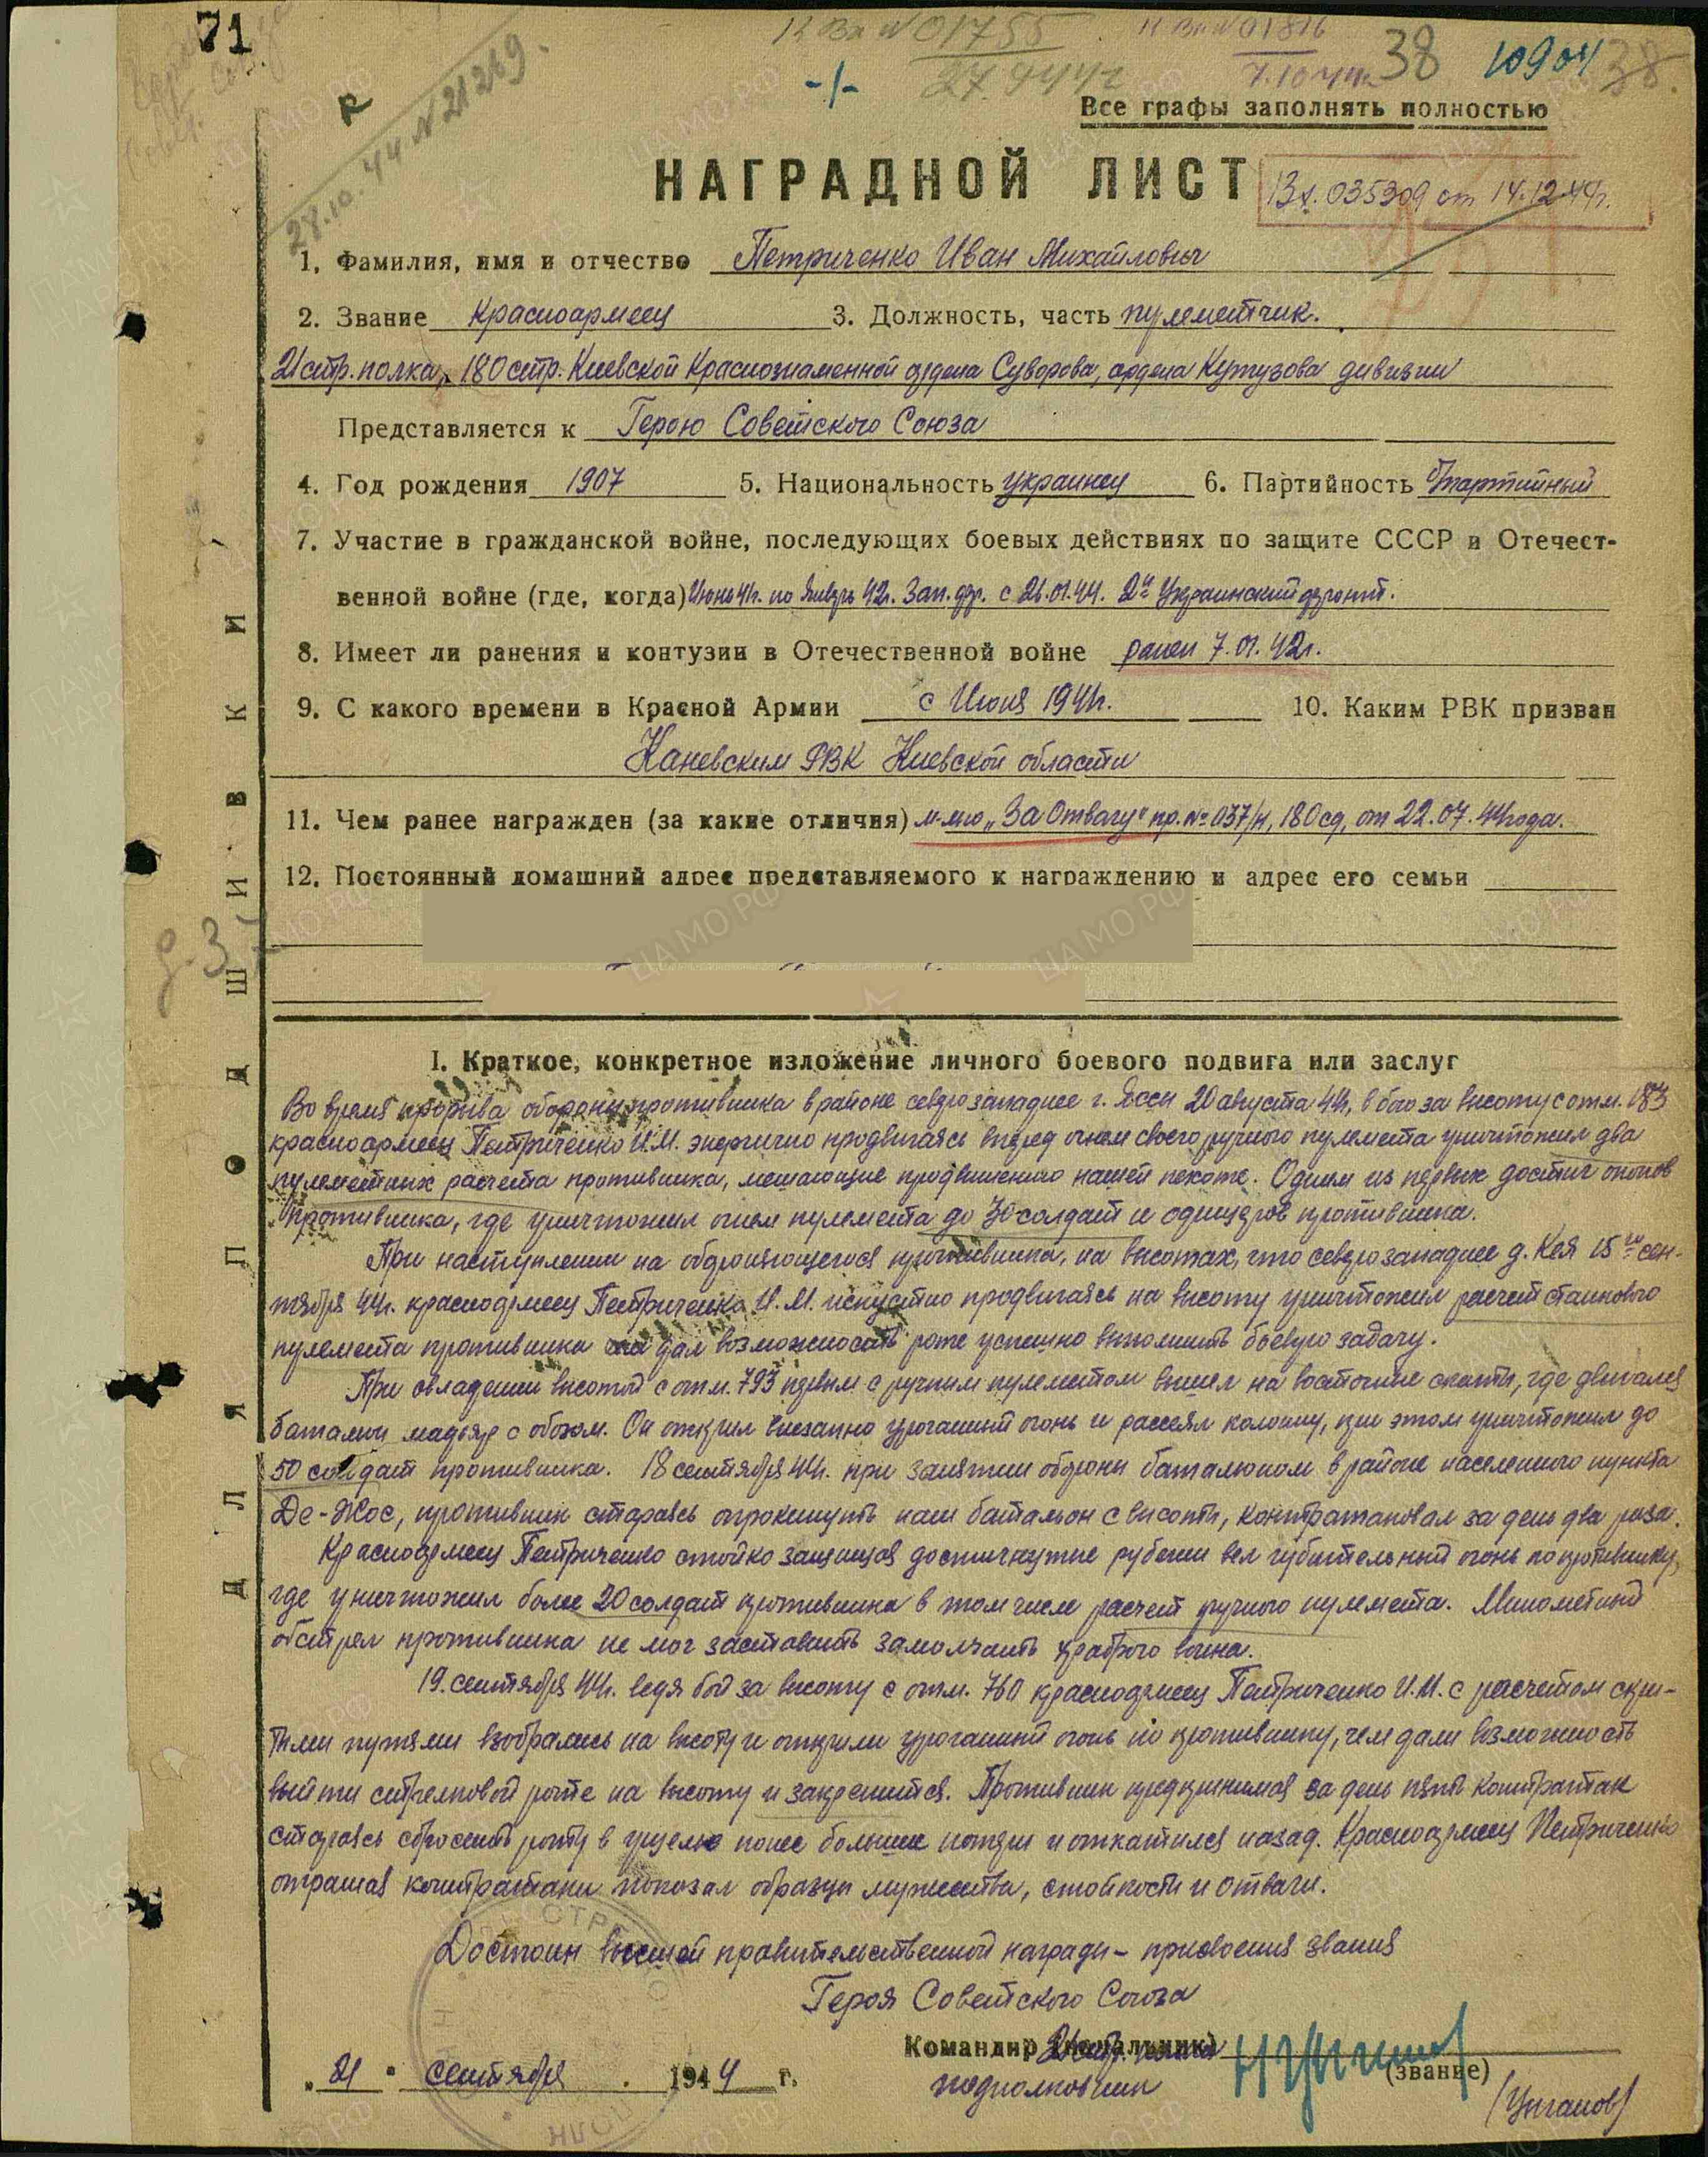 71
К Вх №01755
27.9.44г
К Вх №01816
7.10.44г
38
10904
38.
-1-
28.10.44 №21269.
Все графы заполнять полностью
НАГРАДНОЙ ЛИСТ
Вх. 035309 от 14.12.44г.
1. Фамилия, имя и отчество Петриченко Иван Михайлович
2. Звание Красноармеец 3. Должность, часть пулеметчик.
21 стр. полка, 180 стр. Киевской Краснознаменной ордена Суворова, ордена Кутузова дивизии
Представляется к Герою Советского Союза
4. Год рождения 1907 5. Национальность украинец 6. Партийность Б/партийный
7. Участие в гражданской войне, последующих боевых действиях по защите СССР и Отечест-
венной войне (где, когда) Июнь 41г. по Январь 42г. Зап. фр. с 26.01.44. 2й Украинский фронт.
8. Имеет ли ранения и контузии в Отечественной войне ранен 7.01.42г.
9. С какого времени в Красной Армии с Июня 1941г. 10. Каким РВК призван
Каневским РВК Киевской области
11. Чем ранее награжден (за какие отличия) м-лью „За Отвагу" пр. №037/н, 180 сд, от 22.07.44года.
12. Постоянный домашний адрес представляемого к награждению и адрес его семьи
ДЛЯ ПОДШИВКИ
I. Краткое, конкретное изложение личного боевого подвига или заслуг
Во время прорыва обороны противника в районе северозападнее г. Яссы 20 августа 44г, в бою за высоту с отм. 183
красноармеец Петриченко И.М. энергично продвигаясь вперед огнем своего ручного пулемета уничтожил два
пулеметных расчета противника, мешающие продвижению нашей пехоте. Одним из первых достиг окопов
противника, где уничтожил огнем пулемета до 30 солдат и офицеров противника.
При наступлении на обороняющегося противника, на высотах, что северозападнее д. Кея 15го сен-
тября 44г. красноармеец Петриченко И.М. искустно продвигаясь на высоту уничтожил расчет станкового
пулемета противника дал возможность роте успешно выполнить боевую задачу.
При овладении высотой с отм. 793 первым с ручным пулеметом вышел на восточные скаты, где двигался
батальон мадьяр с обозом. Он открыл внезапно ураганный огонь и рассеял колонну, при этом уничтожил до
50 солдат противника. 18 сентября 44г. при занятии обороны батальоном в районе населенного пункта
Де-Жос, противник стараясь опрокинуть наш батальон с высоты, контратаковал за день два раза.
Красноармеец Петриченко стойко защищая достигнутые рубежи вел губительный огонь по противнику,
где уничтожил более 20 солдат противника в том числе расчет ручного пулемета. Минометный
обстрел противника не мог заставить замолчать храброго воина.
19. сентября 44г. ведя бой за высоту с отм. 760 красноармеец Петриченко И.М. с расчетом скры-
тыми путями взобрались на высоту и открыли ураганный огонь по противнику, чем дали возможность
выйти стрелковой роте на высоту и закрепится. Противник предпринимая за день пять контратак
стараясь сбросить роту в ущелье понес большие потери и откатился назад. Красноармеец Петриченко
отражая контратаки показал образцы мужества, стойкости и отваги.
Достоин высшей правительственной награды - присвоения звания
Героя Советского Союза
Командир (начальник) 21 стр. полка
подполковник
(звание)
(Цыганов)
„21" сентября 1944 г.